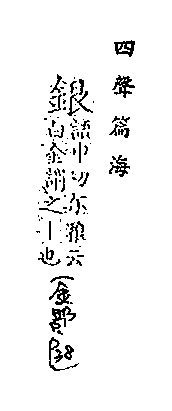 四聲篇海
銀語巾切尔雅云
白金謂之｜也(金部